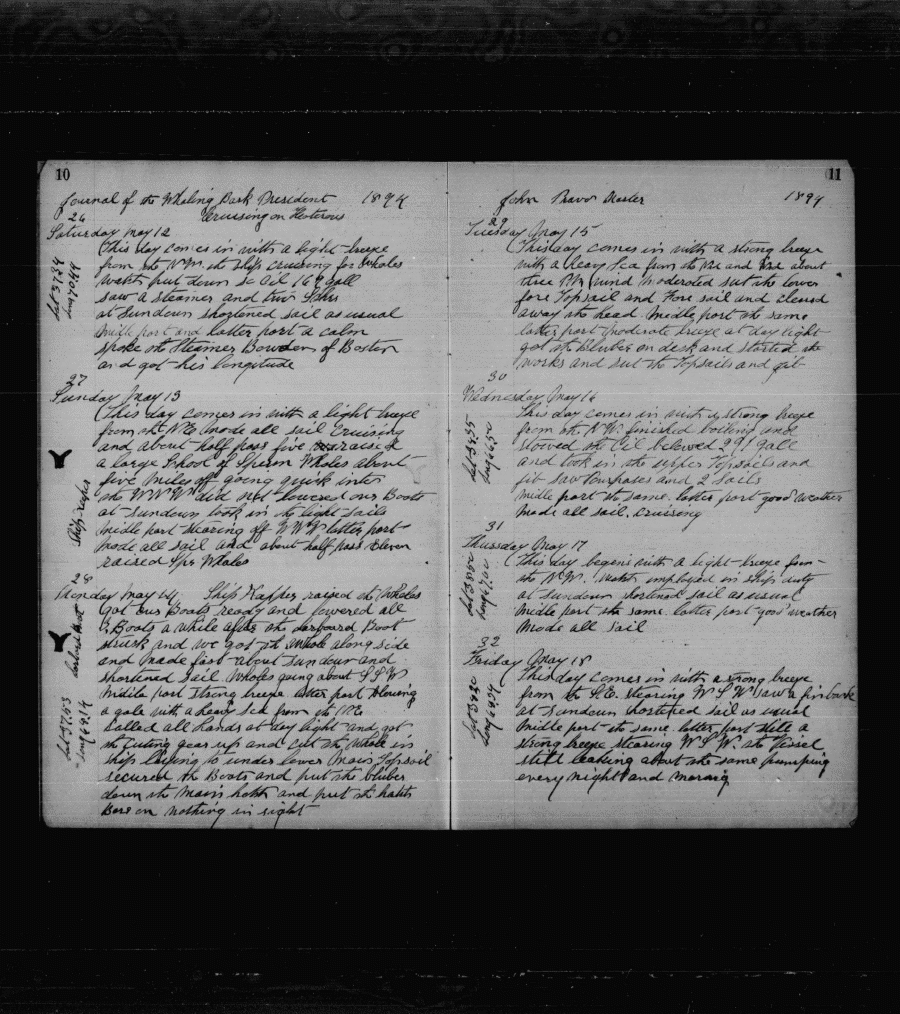 10
Journal of the Whaling Bark President 1894
26 Cruising on Hatrous
Saturday May 12
This day comes in with a light breeze
from the N.W. the ship cruising for Whales
watch put down so Oil 169 gall
saw a steamer and two Sails
at Sundown shortened sail as usual
midle part and latter part a calm
spoke the Steamer Bowden of Boston
and got his longitude
Lat 3734
Long 7044
27
Sunday May 13
This day comes in with a light breeze
from the NE made all sail Cruising
and about half pass five raised
a large School of Sperm Whales about
five miles off going quick into
the WNW did not lowered our Boats
at sundown took in the light sails
midle part stearing off WNW latter part
made all sail and about half pass Eleven
raised Spr Whales
28
Monday May 14 Ship Keeper raised the Whales
got our Boats ready and lowered all
3 Boats a while after the larboard Boat
struck and we got the whale along side
and made fast about sundown and
shortened sail Whales going about SSW
midile part strong breeze latter part blowing
a gale with a heavy sea from the NE
called all hands at day light and got
the cuting gear up and cut the whale in
ship laying to under lower Main Topsail
secured the Boats and put the bluber
down the Main hatch and put the hatch
Bars on nothing in sight
Ship keeper
larboard Boat
Lat 3743
Long 6914
11
John Bravo Master 1894
29
Tuesday May 15
This day comes in with a strong breeze
with a heavy Sea from the NE and about
three PM wind moderated sut the lower
fore Topsail and Fore sail and cleared
away the head midle part the same
latter part moderate breeze at day light
got the bluber on deck and started the
works and sut the Topsails and gib
30
Wednesday May 16
This day comes in with a strong breeze
from the NW. finished boiling and
stowed the Oil below 291 gall
and took in the upper Topsails and
gib saw Pourpases and 2 Sails
midle part the same. latter part good weather
made all sail. cruising
Lat 3835
Long 6650
31
Thursday May 17
This day begins with a light breeze from
the N.W. watch employed in ships duty
at sundown shortened sail as usual
midle part the same. latter part good weather
made all sail
32
Friday May 18
This day comes in with a strong breeze
from the S.E. stearing W S W saw a finback
at sundown shortened sail as usual
midle part the same. latter part still a
strong breeze stearing W S W. the Vessel
still leaking about the same pumping
every night and morning